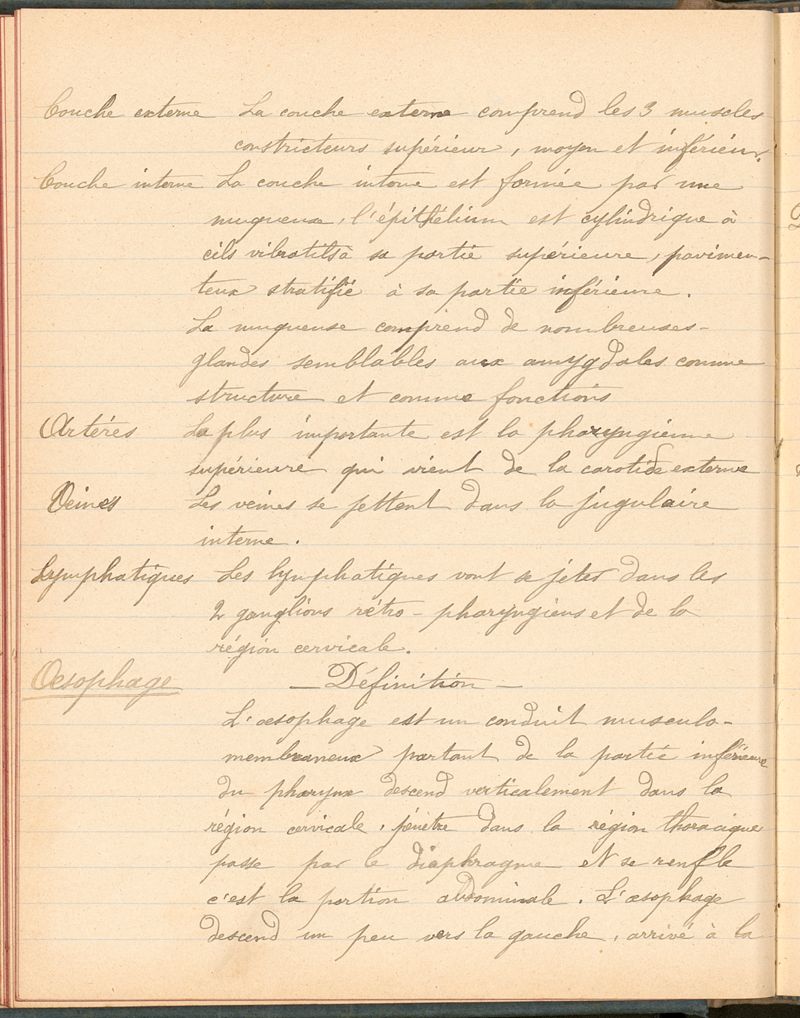 Couche externe La couche externe comprend les 3 muscles
constricteurs supérieur, moyen et inférieur.
Couche interne La couche interne est formée par une
muqueux, l'épithélium est cylindrique à
cils vibratils à sa partie supérieure, pavimen-
teux stratifié à sa partie inférieure.
La muqueuse comprend de nombreuses-
glandes semblables aux amygdales comme
structure et comme fonctions
Artéres La plus importante est la pharyngienne
supérieure qui vient de la carotide externe
Veines Les veines se jettent dans la jugulaire
interne.
Lymphatiques Les lymphatiques vont se jeter dans les
2 ganglions rétro-pharyngiens et de la
région cervicale.
Oesophage — Définition —
L'œsophage est un conduit musculo-
membraneux partant de la partie inférieure
du pharynx descend verticalement dans la
région cervicale, pénètre dans la région thoracique
passe par le diaphragme et se renfle
c'est la portion abdominale. L'œsophage
descend un peu vers la gauche, arrivé à la